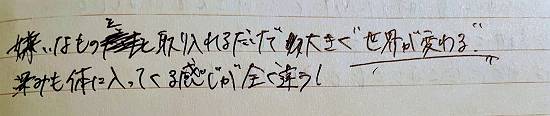 嫌いなものを取り入れるだけで大きく"世界が変わる"
深みも体に入ってくる感じが全く違う!